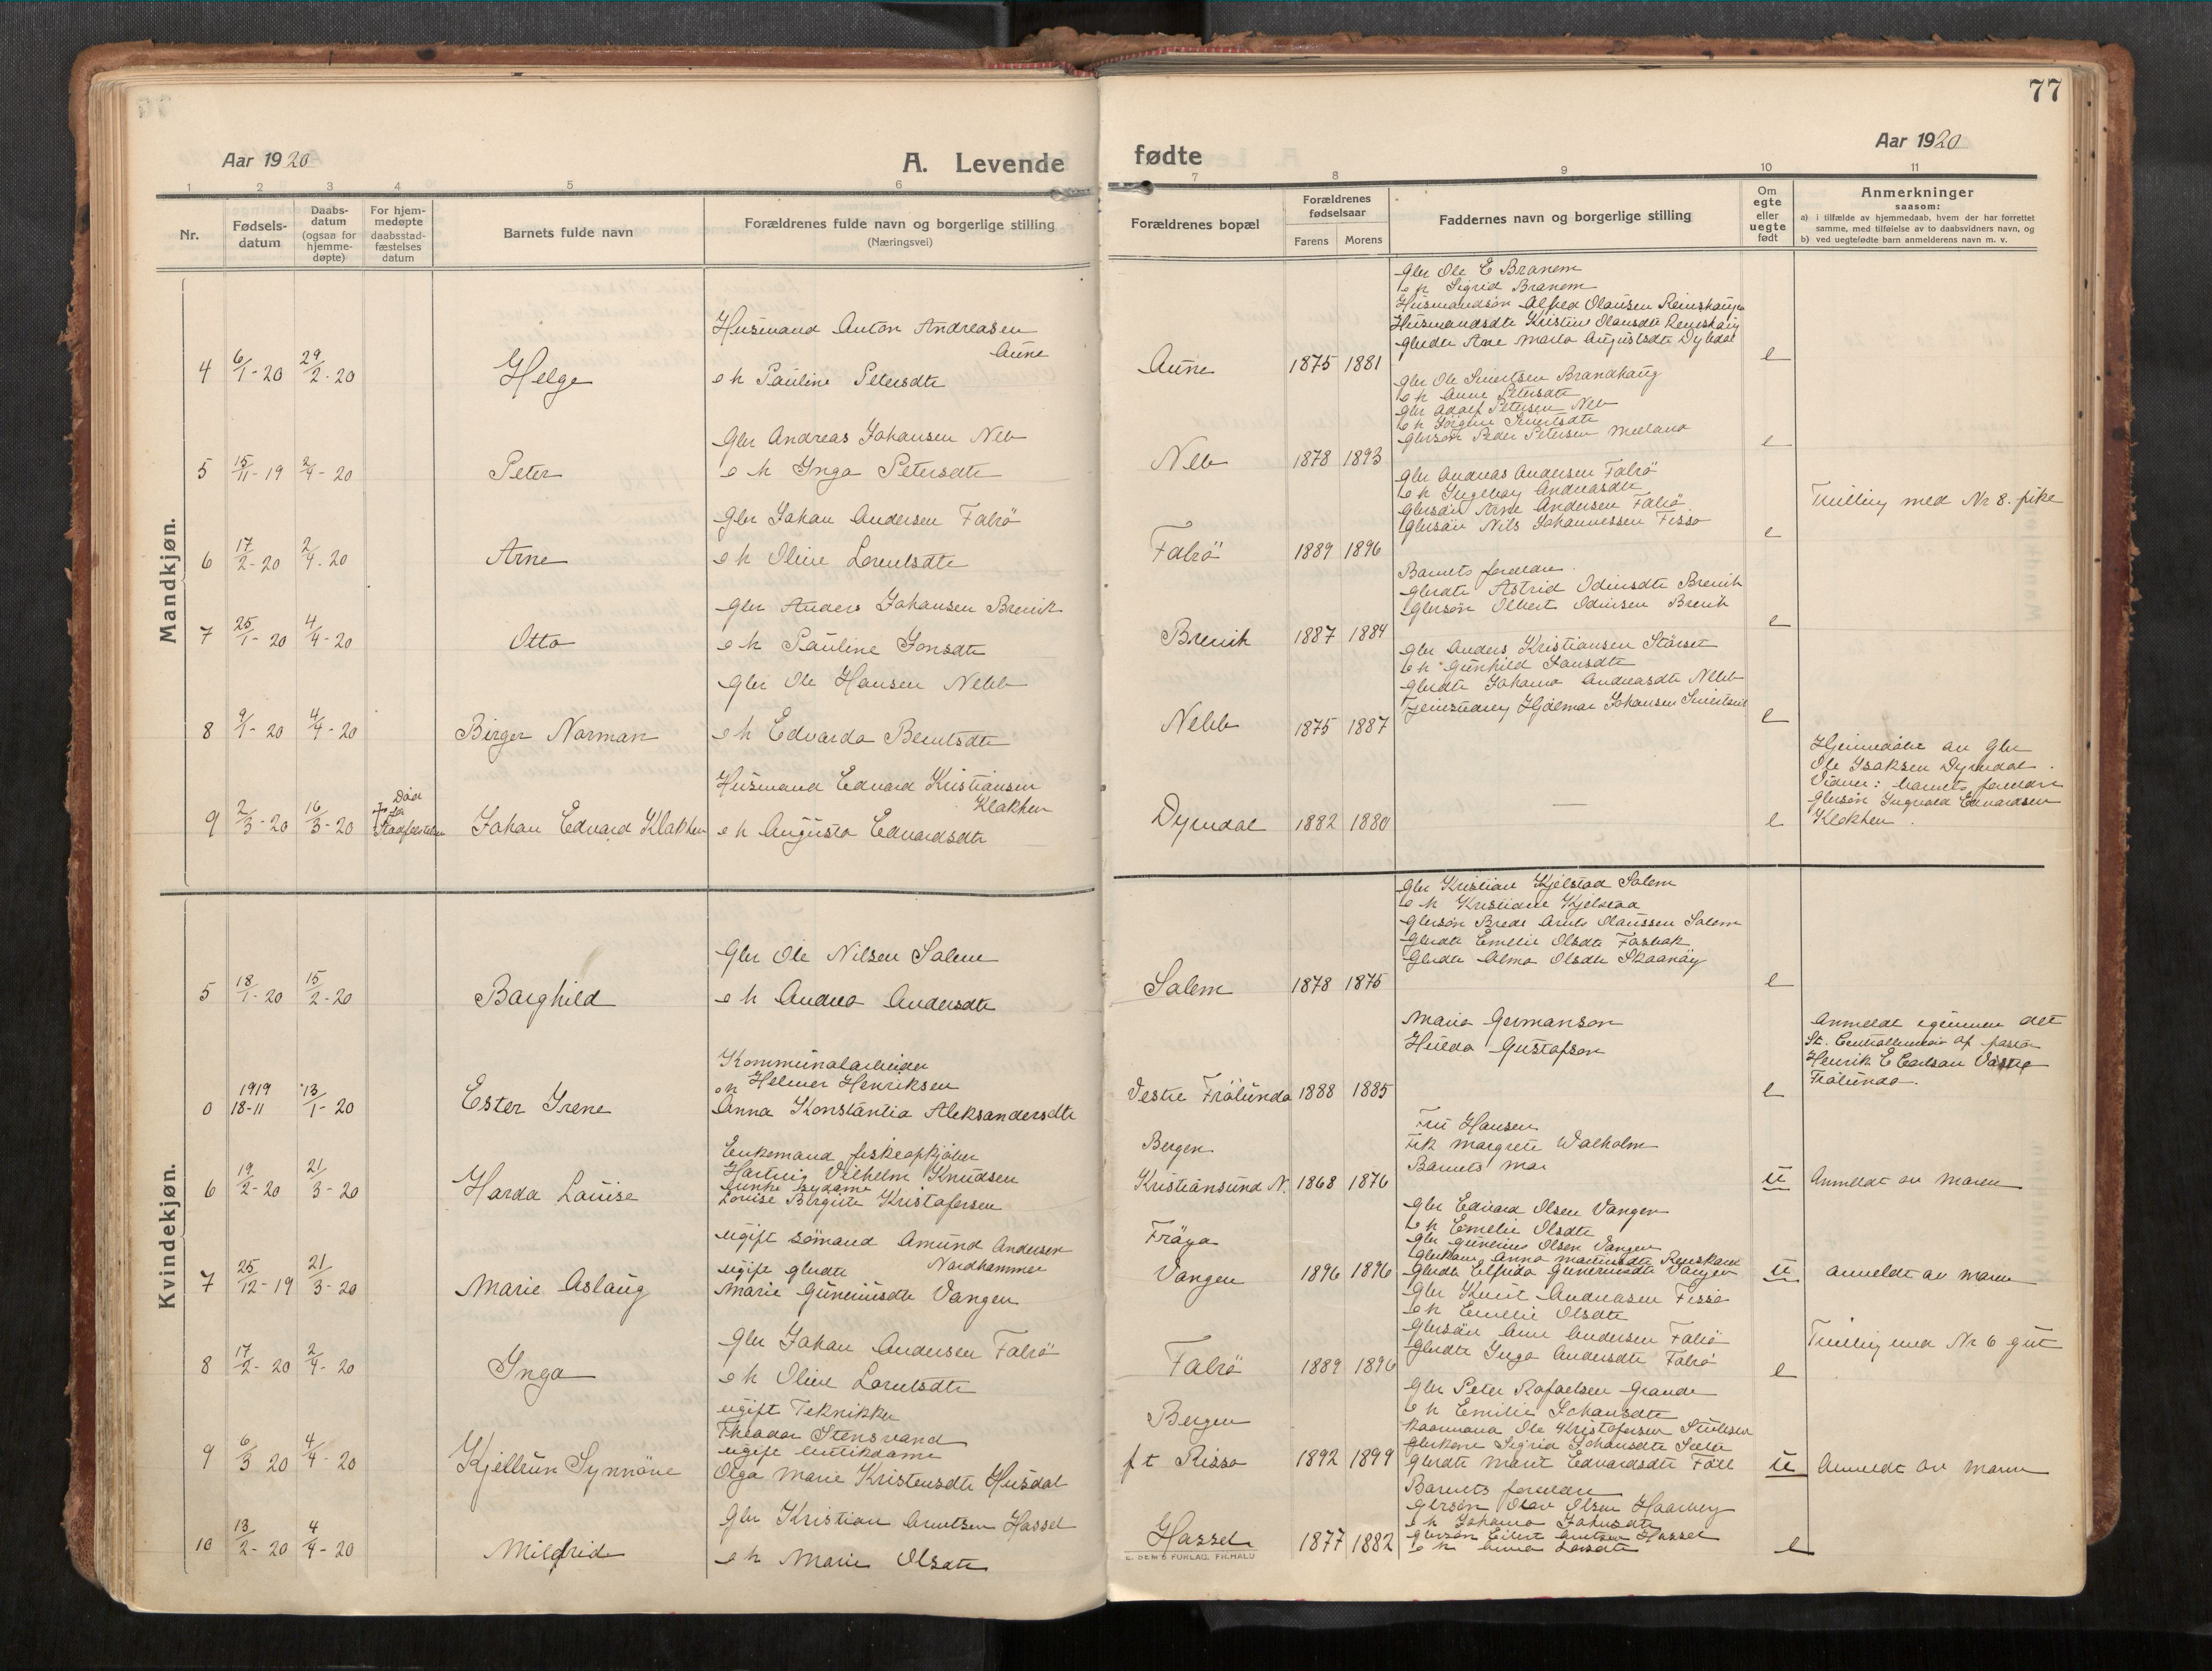 77
Aar 1920
A. Levende
fødte
Aar 1920
1 2 3 4 5 6 7 8 9 10 11
Nr.
Fødsels-
datum
Daabs-
datum
(ogsaa for
hjemme-
døpte)
For hjem-
medøpte
daabsstad-
fæstelses
datum
Barnets fulde navn
Forældrenes fulde navn og borgerlige stilling
(Næringsvei)
Forældrenes bopæl
Forældrenes
fødselsaar
Farens Morens
Faddernes navn og borgerlige stilling
Om
egte
eller
uegte
født
Anmerkninger
saasom:
a) i tilfælde av hjemmedaab, hvem der har forrettet
samme, med tilføielse av to daabsvidners navn, og
b) ved uegtefødte barn anmelderens navn m. v.
Mandkjøn.
4 6/1-20 29/2-20 Helge
Husmand Anton Andreasen
Aune
e h Pauline Petersdtr
Aune 1875 1881
Gbr Ole E Branem
e h Sigrid Branem
Husmandsøn Alfred Olausen Reinshaug
Husmandsdtr Kristine Olausdtr Reinshaug
e
5 15/11-19 2/4-20 Peter
Gbr Andreas Johansen Neb
e h Inga Petersdtr
Neb 1878 1893
Gbr Ole Sivertsen Brandhaug
e h Anne Petersdtr
Gbr Adolf Petersen Neb
e h Jørgine Sivertsdtr
Gbrsøn Peder Petersen
e
6 17/2-20 2/4-20 Arne
Gbr Johan Andersen Falrö
e h Olive Lorentsdtr
Falrö 1889 1896
Gbr Andreas Andersen Falrö
e h Ingeborg Andreasdtr
Gbrsøn Arne Andersen Falrö
Gbrsøn Nils Johannessen Fissa
e
Tvilling med Nr 8. pike
7 25/1-20 4/4-20 Otto
Gbr Anders Johansen Brevik
e h Pauline Jonsdtr
Brevik 1887 1884
Barnets foreldre
Gbrdtr Astrid Odinsdtr Brevik
Gbrsøn Olbert Odinsen Brevik
e
8 9/1-20 4/4-20 Birger Norman
Gbr Ole Hansen Nebb
e h Edvarda Berntsdtr
Nebb 1875 1887
Gbr Anders Kristiansen Störset
e h Gunhild Jansdtr
Gbrdtr Johanna Andreasdtr Nebb
Hjalmar Johansen
e
9 2/3-20 16/3-20
Død
før
Stadfæstelse
Johan Edvard Klakken
Husmand Edvard Kristiansen
Klakken
e h Augusta Edvardsdtr
Dyrndal 1882 1880 — e
Hjemmedöbt av Gbr
Ole Isaksen Dyrndal.
Vidner: barnets foreldre
Gbrsøn Ingvald Edvardsen
Klakken.
Kvindekjøn.
5 18/1-20 15/2-20 Borghild
Gbr Ole Nilsen Salem
e h Andrea Andersdtr
Salem 1878 1875
Gbr Kristian Kjelstad Salem
e h Kristiane Kjelstad
Gbrsøn Brede Arnts Olaussen Salem
Gbrdtr Emelie Olsdtr
Gbrdtr Alma Olsdtr Skaanöy
e
0 1919 18-11 13/1-20 Ester Irene
Kommunalarbeider
Helmer Henriksen
e h
Anna Konstantia Aleksandersdtr
Vestre Frölunda 1888 1885
Maria Germanson
Hulda Gustafson
e
Anmeldt igjennem det
St. Centralbureau af pastor
Henrik E Carlson Västra
Frölunda.
6 19/2-20 21/3-20 Harda Louise
Enkemand fiskeopkjöber
Hartvig Vilhelm Knudsen
Louise Birgitte Kristofersen
Bergen
Kristiansund N. 1868 1876
Fru Hansen
Frk Margrete Walholm
Barnets mor
u
Anmeldt av moren
7 25/12-19 21/3-20 Marie Aslaug
ugift sömand Amund Andersen
Nordhammer
ugift gbrdtr
Marie Guneriusdtr Vangen
Fröya
Vangen 1896 1896
Gbr Edvard Olsen Vangen
e h Emelie Olsdtr
Gbr Gunerius Olsen Vangen
Gbrkone Anna Martinsdtr
Gbrdtr Elfrida Guneriusdtr Vangen
u
anmeldt av moren
8 17/2-20 2/4-20 Inga
Gbr Johan Andersen Falrö
e h Olive Lorentsdtr
Falrö 1889 1896
Gbr Knut Andreasen Fissa
e h Emelie Olsdtr
Gbrsøn Arne Andersen Falrö
Gbrdtr Inga Andersdtr Falrö
e
Tvilling med Nr 6 gut
9 6/3 20 4/4-20 Kjellrun Synnöve
ugift Tekniker
Theodor Stensvand
ugift butikdame
Olga Marie Kristensdtr Husdal
Bergen
f t Rissa 1892 1899
Gbr Peter Rafaelsen Grande
e h Emilie Johansdtr
Ole Kristofersen
Gbrkone Sigrid Johansdtr
Gbrdtr Marit Edvardsdtr
u
Anmeldt av moren
10 13/2-20 4/4-20 Milfrid
Gbr Kristian Arntsen Hassel
e h Marie Olsdtr
Hassel 1877 1882
Barnets foreldre
Gbrsøn Olav Olsen
e h Johanna Johnsdtr
Gbrsøn Eilert Arntsen Hassel
e